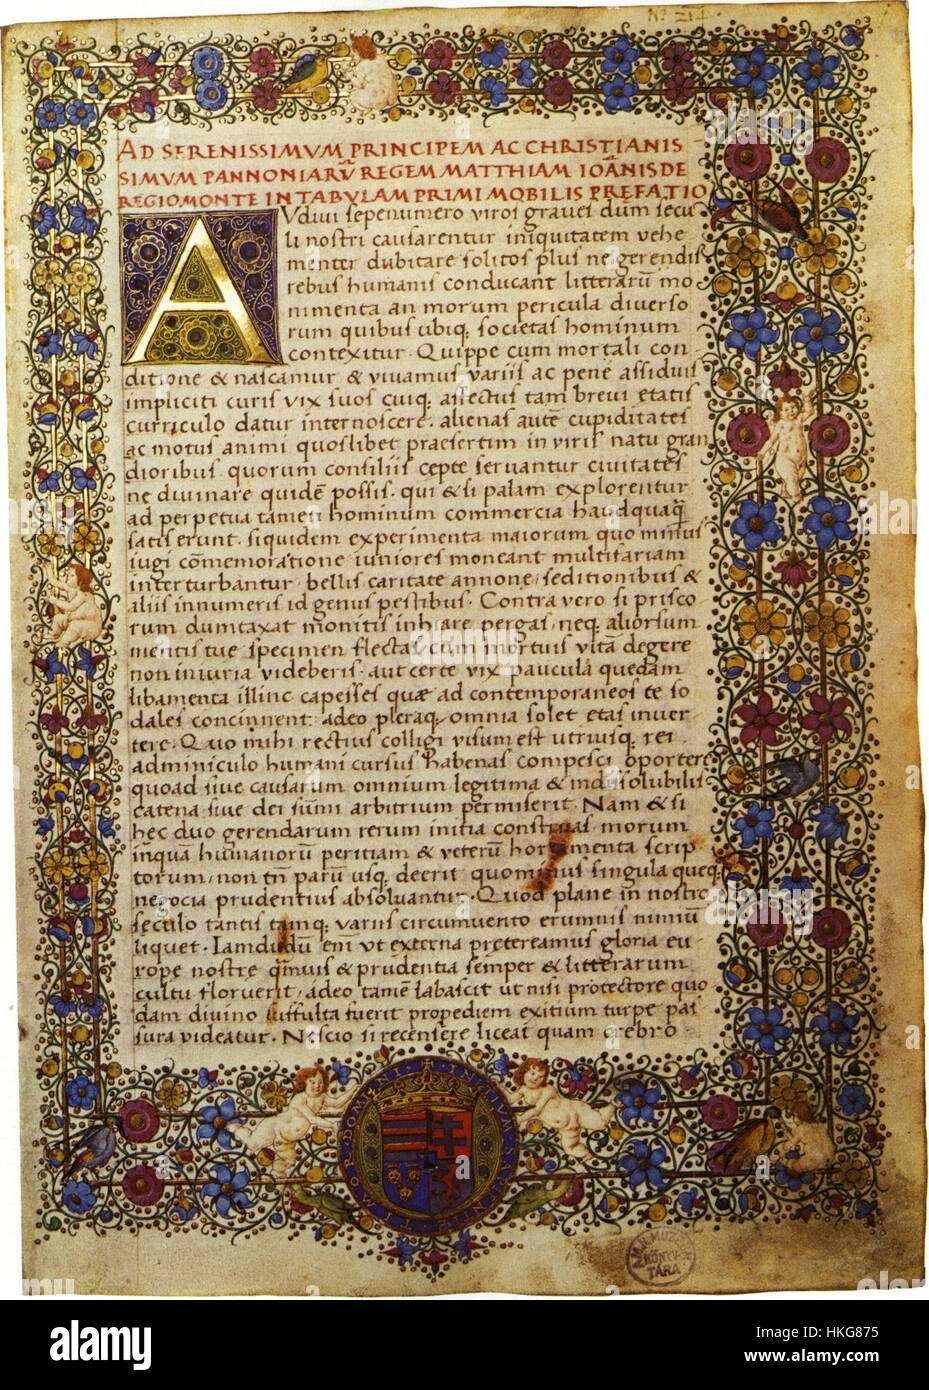 No 214
AD SERENISSIMVM PRINCIPEM AC CHRISTIANIS
SIMVM PANNONIARV̄ REGEM MATTHIAM IOĀNIS DE
REGIOMONTE IN TABVLAM PRIMI MOBILIS PREFATIO
AVdivi sepenumero viros graves dum secu
li nostri causarentur iniquitatem vehe
menter dubitare solitos plus ne gerendis
rebus humanis conducant litterarū mo
nimenta an morum pericula diverso
rum quibus ubiq; societas hominum
contexitur. Quippe cum mortali con-
ditione & nascamur & vivamus variis ac pene assiduis
impliciti curis vix suos cuiq; affectus tam brevi etatis
curriculo datur internoscere. alienas autē cupiditates
ac motus animi quoslibet praesertim in viris natu gran
dioribus quorum consiliis cepte servantur civitates
ne divinare quidē possis. qui & si palam explorentur
ad perpetua tamen hominum commercia haudquaq̄
satis erunt. siquidem experimenta maiorum quo minus
iugi cōmemoratione iuniores moneant multifariam
interturbantur. bellis caritate annone, seditionibus &
aliis innumeris id genus pestibus. Contra vero si prisco
rum dumtaxat monitis inhiare pergas, neq; aliorsum
mentis tue specimen flectas, cum mortuis vitā degere
non iniuria videberis. aut certe vix paucula quedam
libamenta illinc capesses quae ad contemporaneos te so
dales concinnent: adeo pleraq; omnia solet etas inver-
tere. Quo mihi rectius colligi visum est utriusq; rei
adminiculo humani cursus habenas compesci oportere
quoad sive causarum omnium legitima & indissolubilis
catena sive dei sum̄i arbitrium permiserit. Nam & si
hec duo gerendarum rerum initia construas. morum
inquā humanorū peritiam & veterū hortamenta scrip
torum, non tn̄ parū usq; decrit quominus singula queq;
negocia prudentius absoluantur. Quod plane in nostro
seculo tantis tamq; variis circumvento erumnis nimiū
liquet. Iamdudū eni ut externa pretereamus gloria eu-
rope nostre q̄muis & prudentia semper & litterarum
cultu floruerit, adeo tamē labascit ut nisi protectore quo
dam divino suffulta fuerit propediem exitium turpe pas
sura videatur. Nescio si recensere liceat quam crebro
M. N. MUZEUM
KÖNYV-
TÁRA
alamy
Image ID: HKG875
www.alamy.com